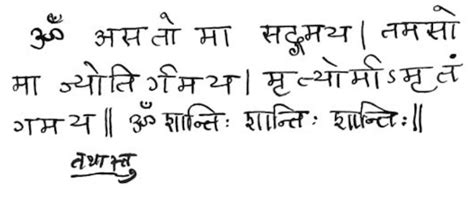 ॐ असतो मा सद्गमय | तमसो
मा ज्योतिर्गमय | मृत्योर्माऽमृतं
गमय || ॐ शान्तिः शान्तिः शान्तिः ||
तथास्तु